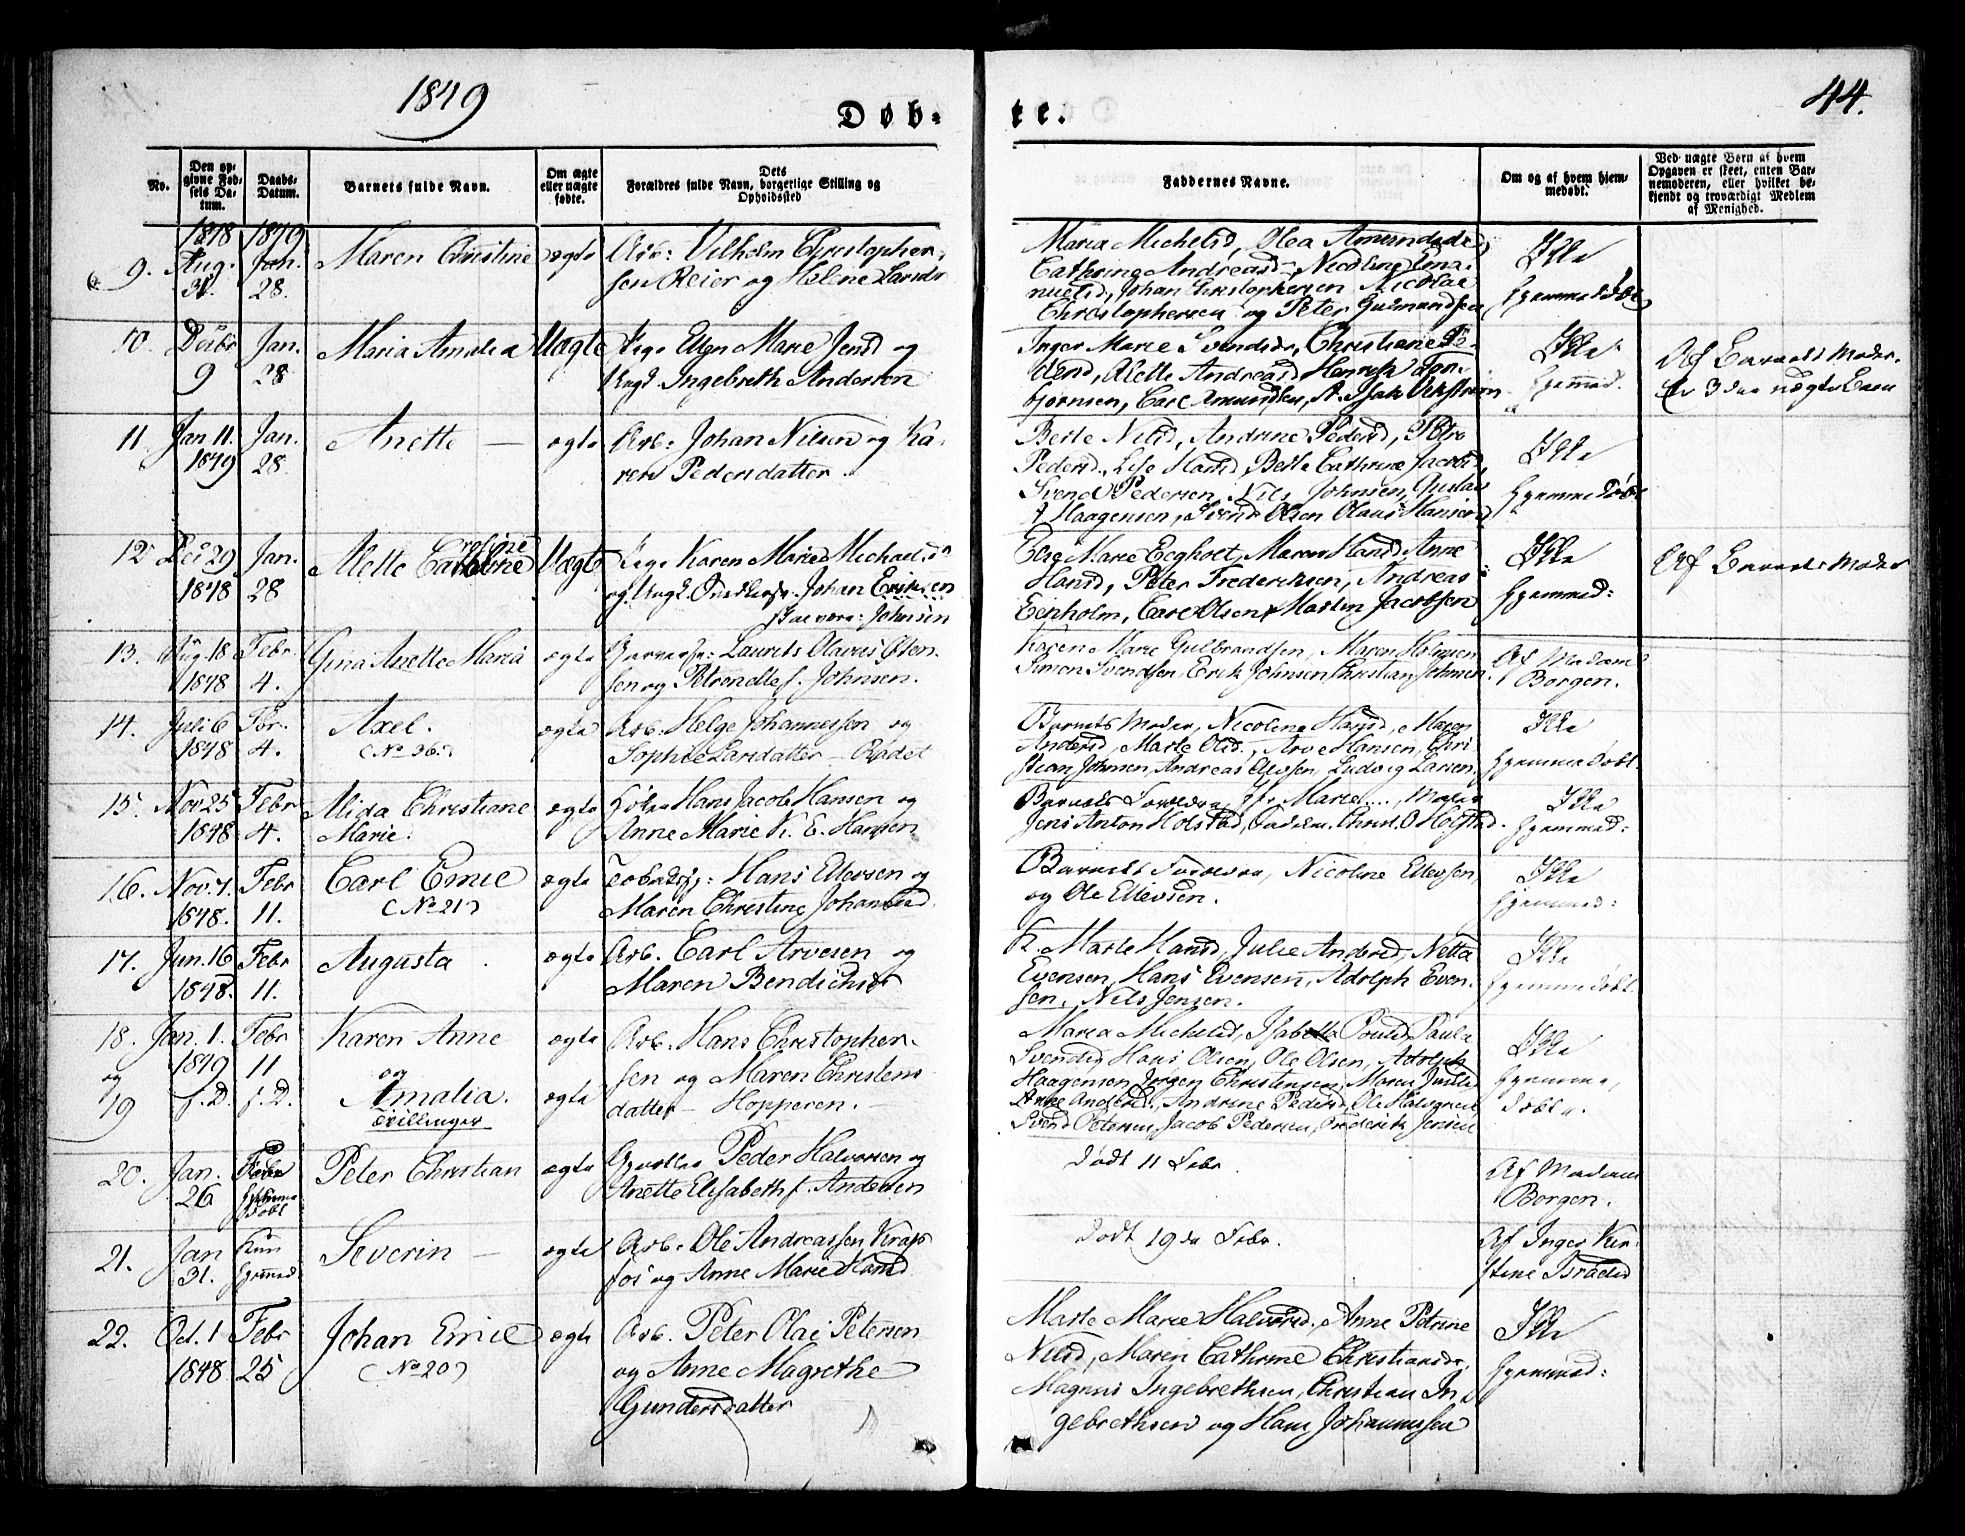 1849
44.
Døb-
te.
No.
Den op-
givne Fød-
sels Da-
tum.
Daabs-
Datum.
Barnets fulde Navn.
Om ægte
eller uægte
fødte.
Dets
Forældres fulde Navn, borgerlige Stilling og
Opholdssted
Faddernes Navne.
Om og af hvem hjem-
medøbt.
Ved uægte Børn af hvem
Opgaven er skeet, enten Bar-
nemoderen, eller hvilket be-
kjendt og troværdigt Medlem
af Menighed.
9. 1848 Aug. 31. 1849 Jan. 28. Maren Christine ægte Arb: Vilhelm Christopher-
sen Reier og Helene Larsdr
Maria Michelsd, Olea Amundsd
Cathrine Andreasd Nicoline Ema-
nuelsd, Johan Christophersen Nicolae
Christophersen og Peter Gudmundsen
Ikke
hjemmedøbt
10. Decbr 9 Jan. 28 Maria Amalia Uægte Pige Ellen Marie Jensd og
Ungk Ingebreth Andersen
Inger Marie Svendsdr, Christiane Pe-
dersd, Alette Andreasd Henrik Tor-
bjørnsen, Carl Amundsen,
Ikke
hjemmed.
Af Barnets Moder.
er 3die uægte Barn
11. Jan 11. 1849 Jan. 28. Anette — ægte Arb: Johan Nilsen og Ka-
ren Pedersdatter
Berte Nilsd, Andrine Pedersd,
Pedersd, Lise Hansd, Berte Cathrine Jacobsd,
Svend Pedersen, Nils Johnsen, Gustav
Haagensen, Svend Olsen Olaus Hansen
Ikke
hjemmedøbt
12 Dec 29 1848 Jan. 28 Alette Caroline Uægte Pige Karen Marie Michaelsd
og Ungk. Johan Eriksen
Johnsen
Else Marie Eegholt, Maren Hansd Anne
Hansd, Peter Frederiksen, Andreas
Eenholm, Carl Olsen, Martin Jacobsen
Ikke
hjemmed:
Af Barnets Moder
13. Aug. 18 1848 Febr. 4. Gina Anette Maria ægte Laurits Olavus Olen-
sen og Petronelle f. Johnsen.
Karen Marie Gulbrandsen, Maren Holmsen
Simon Svendsen, Erik Johnsen Christian Johnsen.
Af Madame
Borgen.
14. Juli 6 1848 Febr. 4. Axel. (No 36.) ægte Arb. Helge Johannessen og
Sophie Larsdatter — Rødet
Barnets Moder, Nicoline Hansd, Maren
Andersd, Marte Olsd., Arve Hansen, Chri
stian Johnsen, Andreas Olavsen, Ludvig Larsen,
Ikke
hjemmedøbt
15. Nov 25 1848 Febr 4. Alida Christiane
Marie. ægte Hans Jacob Hansen og
Anne Marie K. E. Hansen
Barnets Forældre, Jfr. Marie ...,
Jens Anton Holstad, Christ. O Holstad.
Ikke
hjemmed:
16. Nov. 7. 1848. Febr 11. Carl Emil (No 21) ægte Hans Ellevsen og
Maren Christine Johannesd.
Barnets Forældre, Nicoline Ellevsen,
og Ole Ellevsen.
Ikke
hjemmed:
17. Jun. 16 1848. Febr 11. Augusta ægte Arb. Carl Arvesen og
Maren Bendichsd
K. Marte Hansd, Julie Andersd, Netta
Evensen, Hans Evensen, Adolph Even-
sen, Nils Jensen.
Ikke
hjemmedøbt
18. og 19 Jan. 1. 1849 f. D. Febr 11 f. D. Karen Anne
og
Amalia.
Tvillinger ægte ægte Arb. Hans Christopher-
sen og Maren Christens
datter — Hopperen.
Maria Michelsd, Isabella Poulsd, Paula
Svendsd, Hans Olsen, Ole Olsen, Adolph
Haagensen, Jørgen Christensen, Maren
Andrine Pedersd, Ole Halvorsen
Svend Petersen, Jacob Pedersen, Frederik Jensen
Ikke
hjemme-
døbte.
20. Jan. 26 Febr
hjemme
døbt Peter Christian ægte Peder Halvorsen og
Anette Elisabeth f. Andersen
Dødt 11 Febr.
Af Madame
Borgen.
21. Jan 31. Kun
hjemmed. Severin — ægte Arb: Ole Andreassen Krag-
fos og Anne Marie Hansd
Dødt 19de Febr.
Af Inger Kir-
stine Israelsd
22. Oct. 1 1848 Febr 25 Johan Emil (No 20) ægte Arb. Peter Olai Petersen
og Anne Magrethe
Gundersdatter
Marte Marie Halvorsd, Anne Petrine
Nilsd, Maren Cathrine Christiansdr,
Magnus Ingebrethsen, Christian In-
gebrethsen og Hans Johannessen
Ikke
hjemmed: